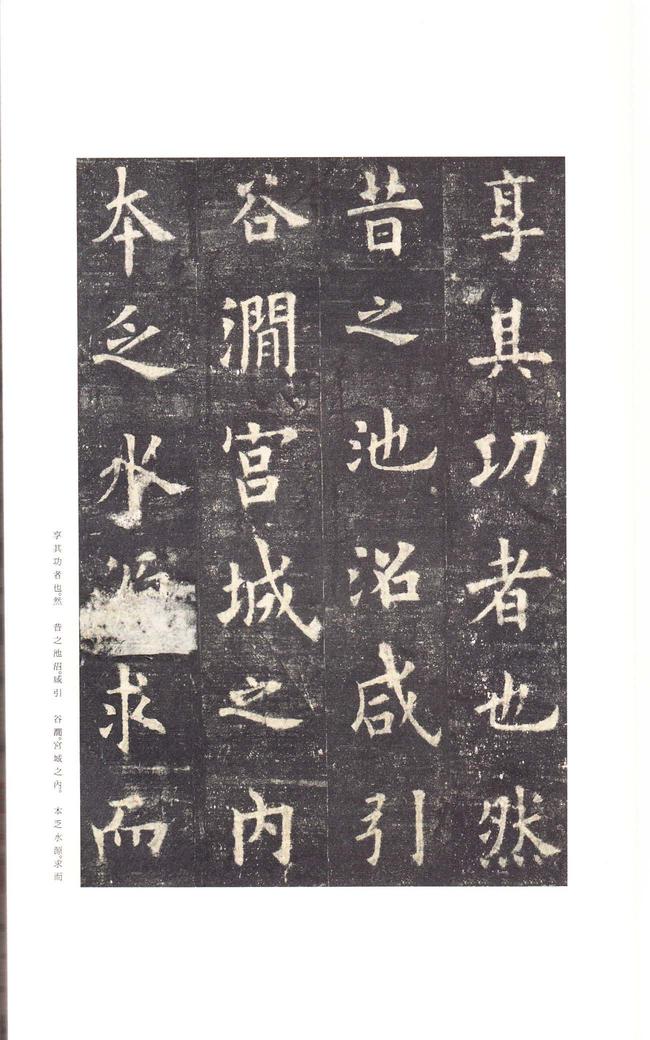 享其功者也然
昔之池沼咸引
谷澗宮城之内
本乏水源求而
享其功者也。然　昔之池沼。咸引　谷澗。宮城之內。　本乏水源。求而